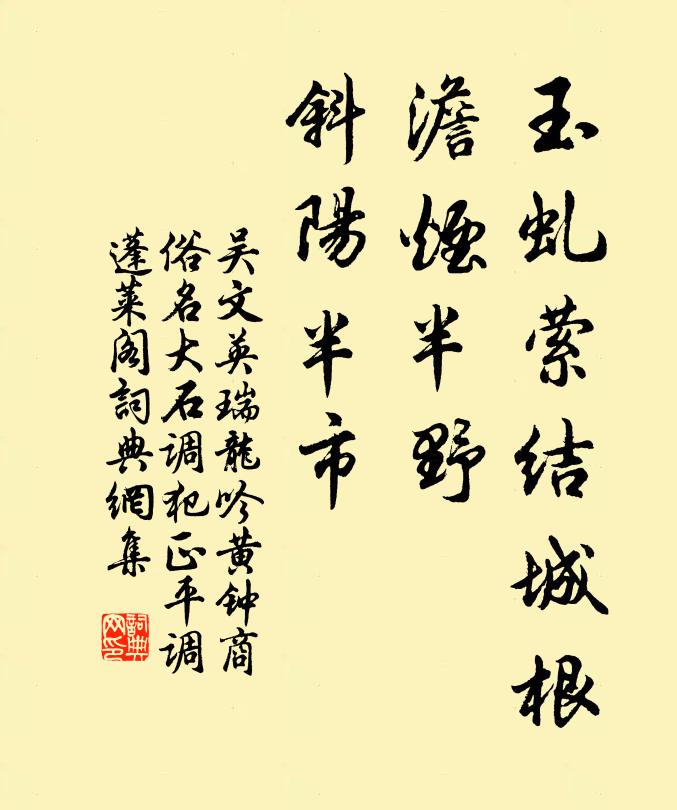 玉虬萦结城根
澹煙半野
斜陽半市
吴文英瑞龍吟黄钟商
俗名大石调犯正平调
蓬莱阁詞典網集
詞典
网印